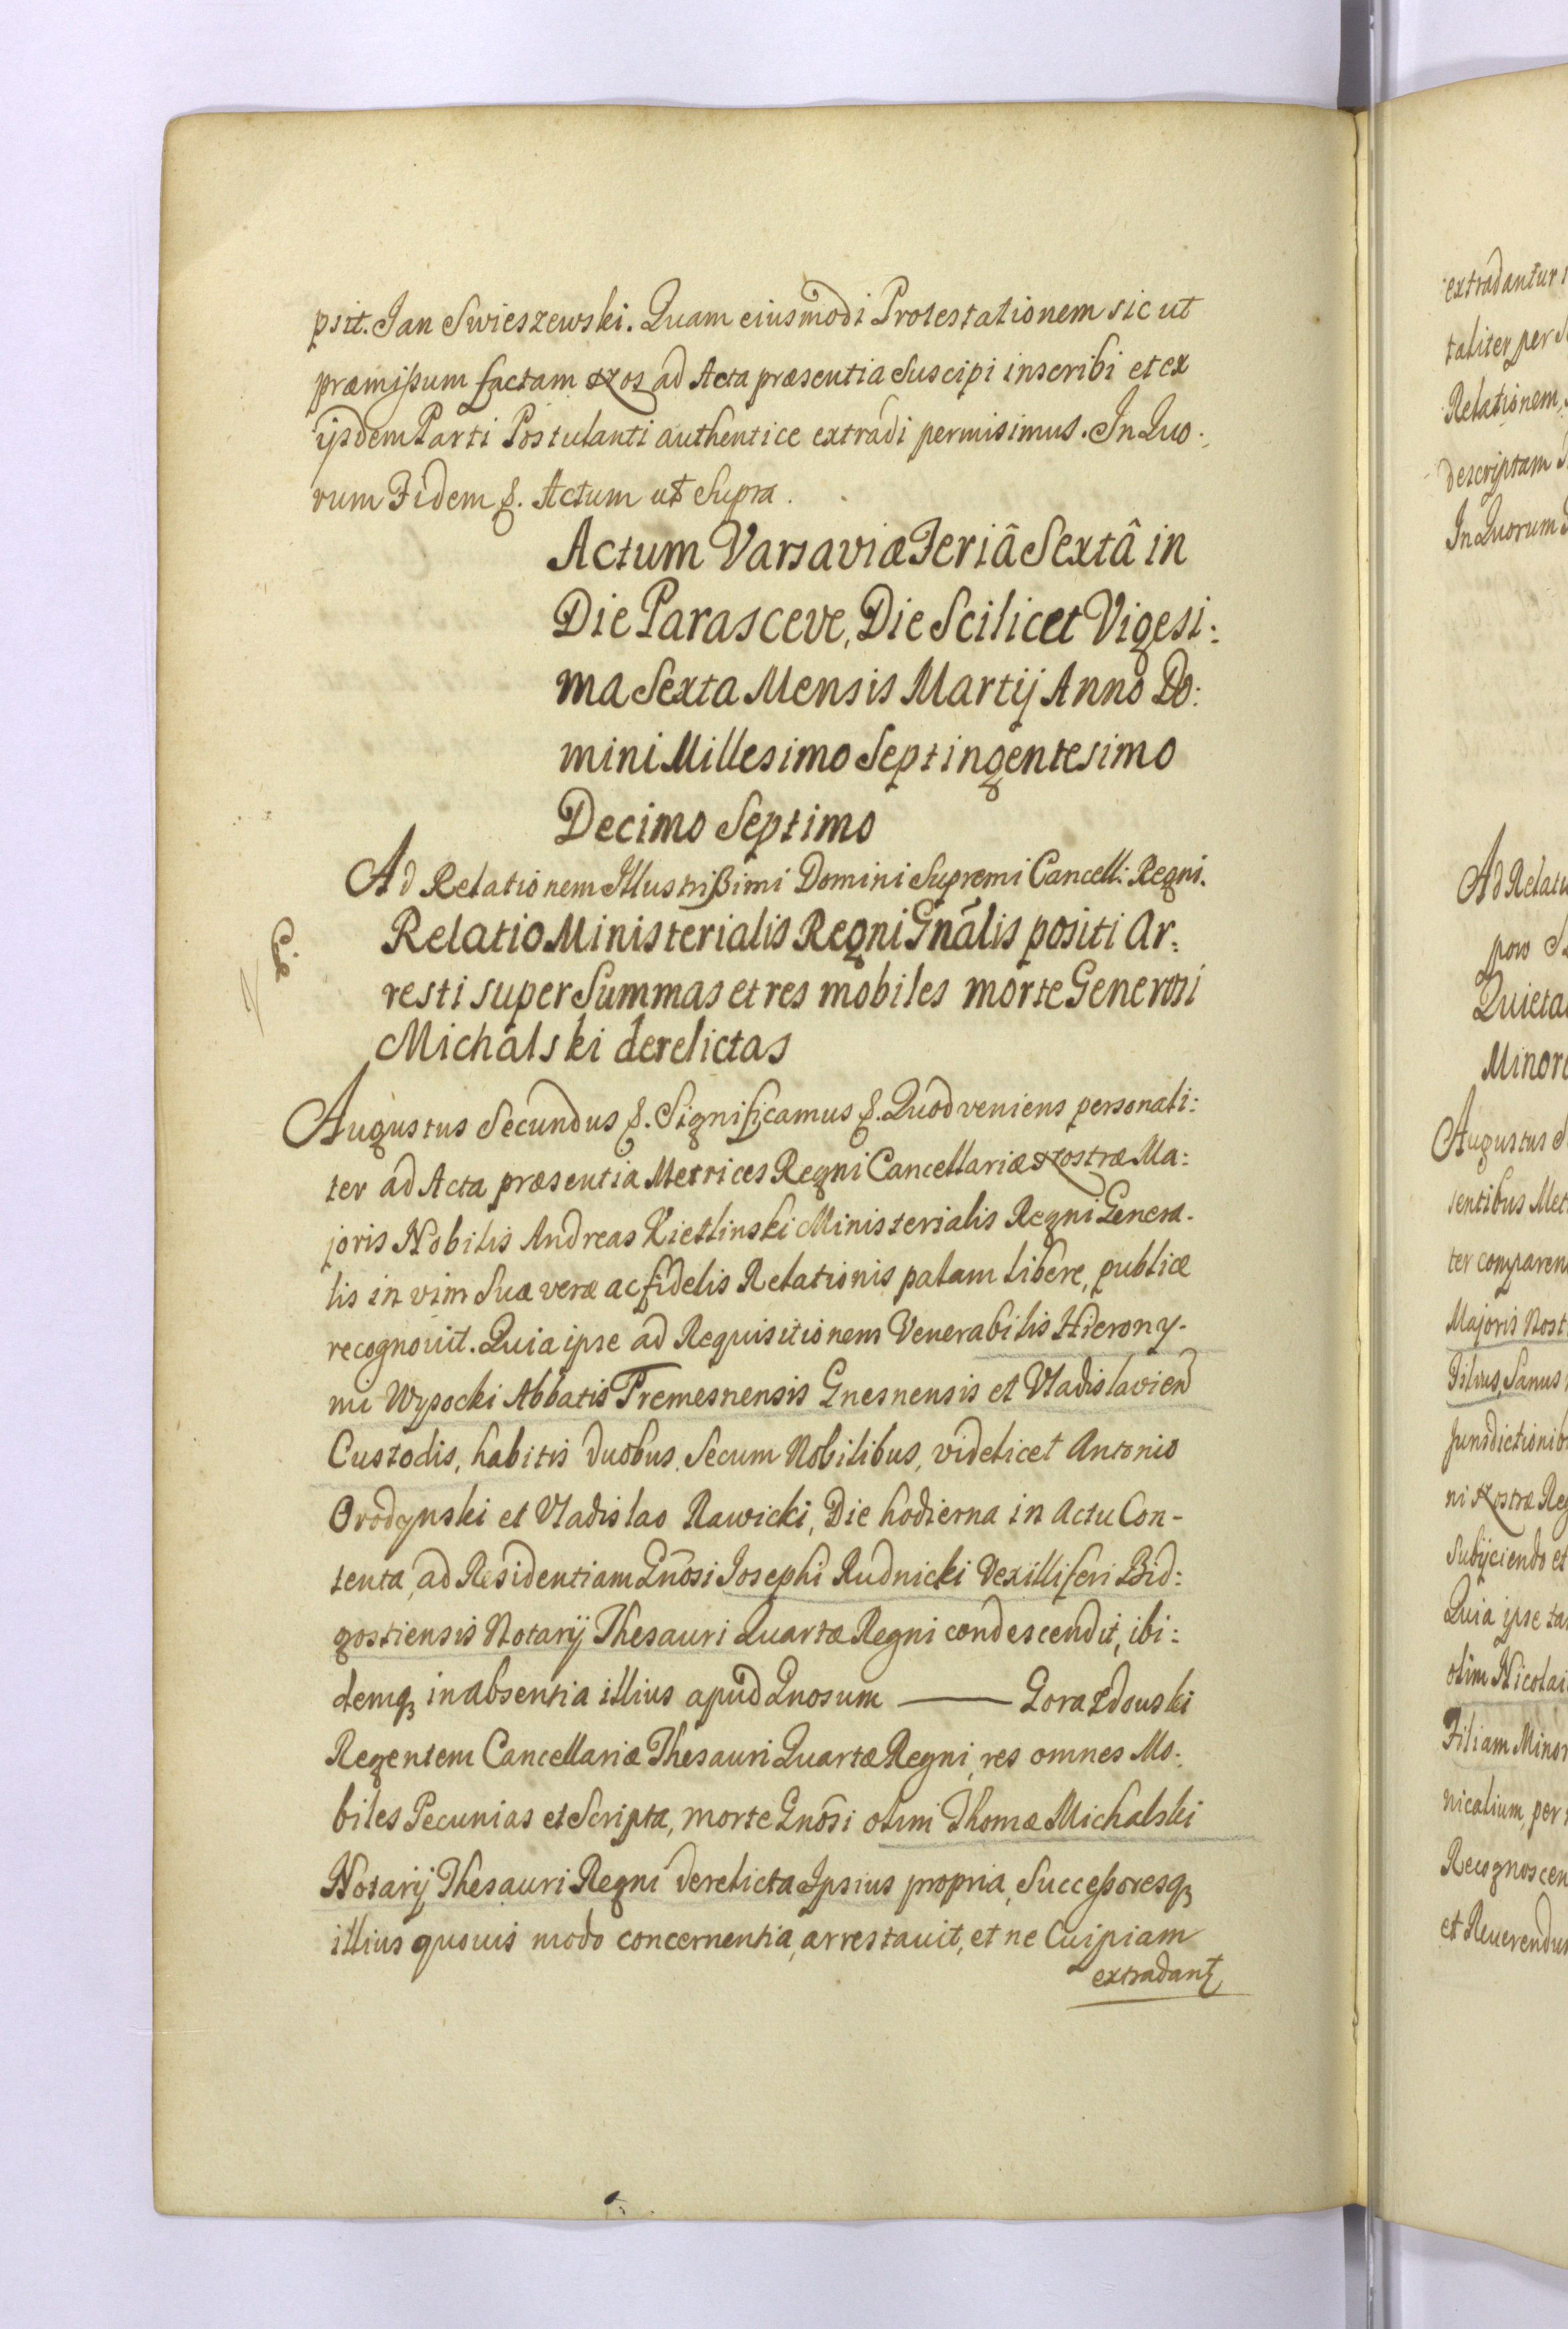 psit. Jan Swieszewski. Quam eiusmodi Protestationem sic ut
præmißum factam Nos ad Acta præsentia Suscipi inscribi et ex
ijsdem Parti Postulanti authentice extradi permisimus. In Quo:
rum Fidem &. Actum ut Supra.
Actum Varsaviæ Feriâ Sextâ in
Die Parasceve, Die Scilicet Vigesi:
ma Sexta Mensis Martij Anno Do:
mini Millesimo Septingentesimo
Decimo Septimo
Ad Relationem Illustrißimi Domini Supremi Cancell: Regni.
Relatio Ministerialis Regni Gnãlis positi Ar:
resti super Summas et res mobiles morte Generosi
Michalski derelictas
Augustus Secundus &. Significamus &. Quod veniens personali:
ter ad Acta præsentia Metrices Regni Cancellariæ Nostræ Ma:
joris Nobilis Andreas Kietlinski Ministerialis Regni Genera-
lis in vim Suæ veræ ac fidelis Relationis palam libere, publicæ
recognovit. Quia ipse ad Requisitionem Venerabilis Hierony-
mi Wysocki Abbatis Premesnensis Gnesnensis et Vladislavien
Custodis, habitis duobus Secum Nobilibus, videlicet Antonio
Orodynski et Vladislao Rawicki, Die hodierna in Actu Con-
tenta, ad Residentiam Gnõsi Josephi Rudnicki Vexilliferi Bid:
gostiensis Notarij Thesauri Quartæ Regni condescendit, ibi:
demq3 in absentia illius apud Gnosum ——— Gorazdowski
Regentem Cancellariæ Thesauri Quartæ Regni, res omnes Mo:
biles Pecunias et Scripta, morte Gnõsi olim Thomæ Michalski
Notarij Thesauri Regni derelicta Ipsius propria, Succeßoresq3
illius quovis modo concernentia, arrestavit, et ne Cuipiam
extradant
extradantur
taliter per
Relationem,
descriptam
In Quorum
Ad Relati
Minor
Augustus S
sentibus Met
ter comparen
Majoris Nost
Filius, Sanus
Jurisdictionib
ni Nostræ Reg
Subijciendo et
Quia ipse ta
olim Nicolai
Filiam Minor
nicalium, per
Recognoscen
et Reverendu